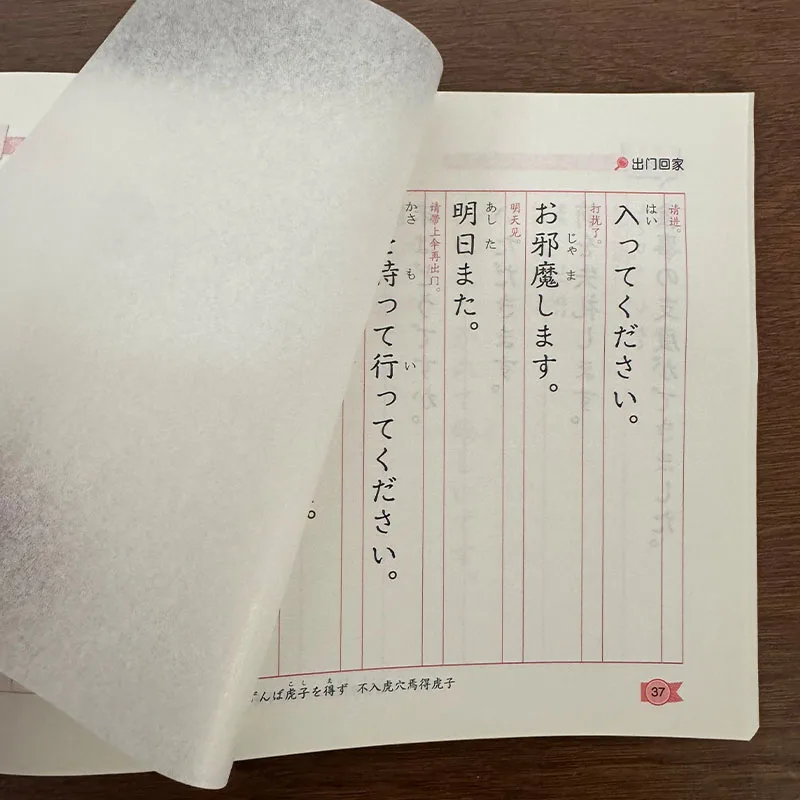 出门回家
请进。
はい
入ってください。
打扰了。
じゃ ま
お邪魔します。
明天见。
あし た
明日また。
请带上伞再出门。
かさ も い
持って行ってください。
。
んば虎子を得ず 不入虎穴焉得虎子
こ し え
37